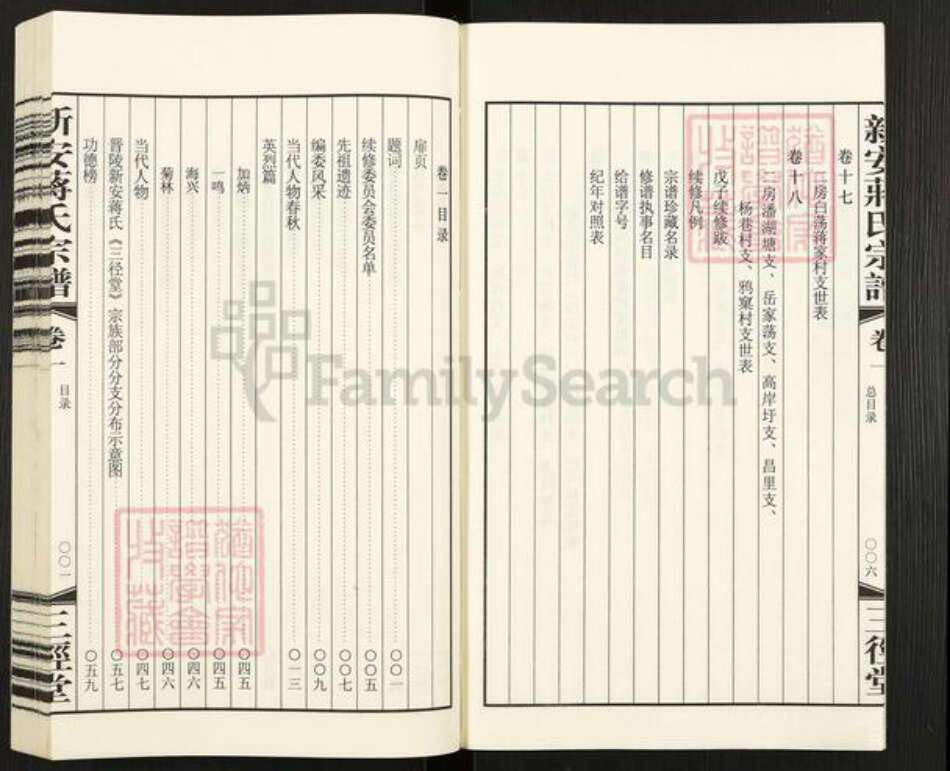 新安蔣氏宗譜
卷一
总目录
〇〇六
三径堂
卷十七
二房白荡蒋家村支世表
卷十八
二房潘湖塘支、岳家荡支、高岸圩支、昌里支、
杨巷村支、鸦窠村支世表
戊子续修跋
续修凡例
宗谱珍藏名录
修谱执事名目
给谱字号
纪年对照表
卷一目录
扉页
题词 〇〇一
续修委员会委员名单 〇〇五
先祖遗迹 〇〇七
编委风采 〇〇九
当代人物春秋 〇一三
英烈篇
加炳 〇四五
一鸣 〇四五
海兴 〇四六
菊林 〇四六
当代人物 〇四七
晋陵新安蒋氏《三径堂》宗族部分分支分布示意图 〇五七
功德榜 〇五九
新安蒋氏宗譜
卷一
目录
〇〇一
三徑堂
FamilySearch